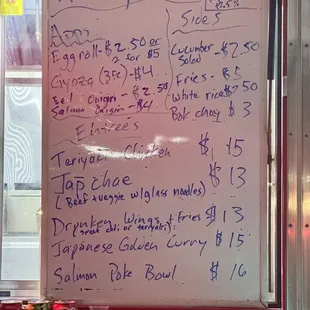 Apps
Eggroll - $2.50 or
2 for $5
Gyoza (3pc) - $4
Eel Onigiri - $2.50
Salmon Onigiri - $4
Sides
Cucumber - $2.50
Salad
Fries - $5
White rice $2.50
Bok choy $3
Entrees
Teriyaki Chicken $15
Jap chae $13
(Beef + veggie w/glass noodles)
Drunken Wings + Fries $13
(sweet chili or teriyaki)
Japanese Golden Curry $15
Salmon Poke Bowl $16